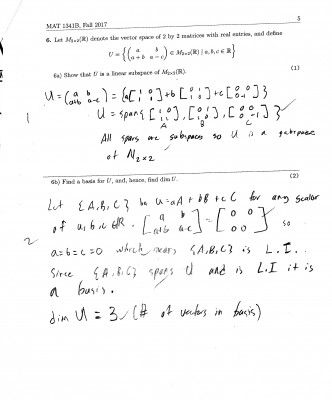 MAT 1341B, Fall 2017 5
6. Let M₂ₓ₂(ℝ) denotes the vector space of 2 by 2 matrices with real entries, and define
U = { ( a b
a+b a−c ) ∈ M₂ₓ₂(ℝ) | a, b, c ∈ ℝ }
6a) Show that U is a linear subspace of M₂ₓ₂(ℝ). (1)
U = ( a b
a+b a-c ) = { a[1 0
1 1] + b[0 1
1 0] + c[0 0
0 -1] }
1
U = span{ [1 0
1 1], [0 1
1 0], [0 0
0 -1] }
A B C
All spans are subspaces so U is a subspace
of M2x2
6b) Find a basis for U, and, hence, find dim U. (2)
Let {A,B,C} be U = aA + bB + cC for any scalar
of a, b, c ∈ ℝ. [a b
a+b a-c] = [0 0
0 0] so
2
a=b=c=0 which means {A,B,C} is L.I.
Since {A,B,C} spans U and is L.I it is
a basis.
dim U = 3 ✓ (# of vectors in basis)